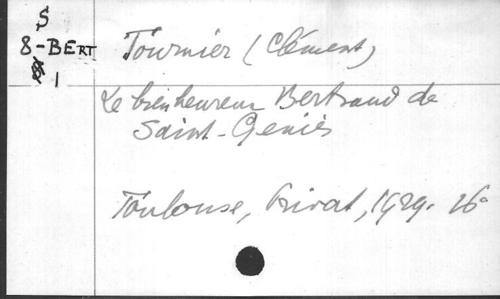 S
8-BERT
1
Tournier (Clément)
Le bienheureux Bertrand de
Saint-Geniès
Toulouse, Privat, 1929. 16°